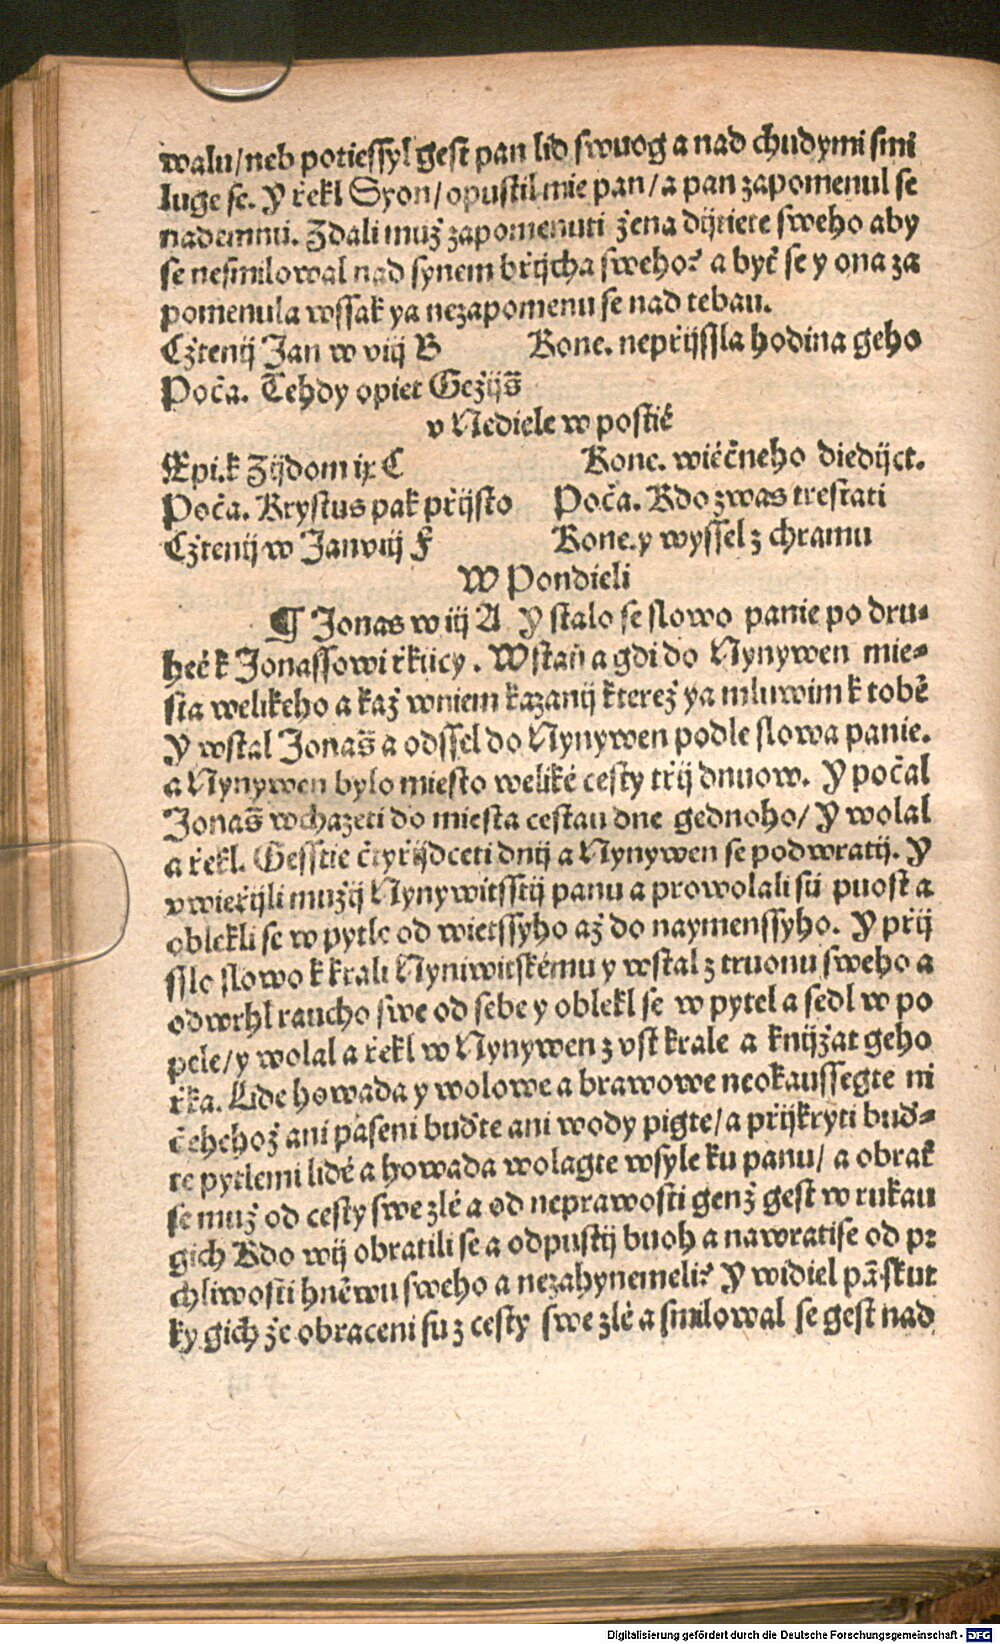 walu/neb potiessyl gest pan lid swuog a nad chudymi smi
luge se. Y řekl Syon/opustil mie pan/a pan zapomenul se
nademnú. Zdali muž zapomenuti žena dijtiete sweho aby
se nesmilowal nad synem břijcha sweho? a byť se y ona za
pomenula wssak ya nezapomenu se nad tebau.
Cžtenij Jan w viij B Kone. nepřijssla hodina geho
Poča. Tehdy opiet Gežijš
v Nediele w postié
Epi.k Zijdom ix C Kone. wiéčneho diedijct.
Poča. Krystus pak přijsto Poča. Kdo zwas trestati
Cžtenij w Janviij F Kone.y wyssel z chramu
W Pondieli
¶ Jonas w iij A Y stalo se slowo panie po dru-
heé k Jonassowi řkúcy. Wstaň a gdi do Nynywen mie-
sta welikeho a kaž wniem kazanij kterež ya mluwim k tobě
Y wstal Jonaš a odssel do Nynywen podle slowa panie.
a Nynywen bylo miesto weliké cesty třij dnuow. Y počal
Jonaš wchazeti do miesta cestau dne gednoho/ Y wolal
a řekl. Gesstie čtyřijdceti dnij a Nynywen se podwratij. Y
vwieřijli mužij Nynywitsstij panu a prowolali sú puost a
oblekli se w pytle od wietssyho až do naymenssyho. Y přij
sslo slowo k krali Nyniwitskému y wstal z truonu sweho a
odwrhl raucho swe od sebe y oblekl se w pytel a sedl w po
pele/y wolal a řekl w Nynywen z vst krale a knijžat geho
řka. Lide howada y wolowe a brawowe neokaussegte ni
čehehož ani páseni buďte ani wody pigte/a přijkryti buď-
te pytlemi lidé a howada wolagte wsyle ku panu/ a obrať
se muž od cesty swe zlé a od neprawosti genž gest w rukau
gich Kdo wij obratili se a odpustij buoh a nawratise od pr
chliwosti hněwu sweho a nezahynemeli? Y widiel pā skut
ky gich že obraceni su z cesty swe zlé a smilowal se gest nad
Digitalisierung gefördert durch die Deutsche Forschungsgemeinschaft - DFG